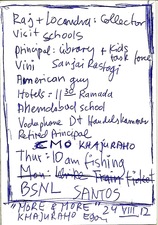 Raj + Locandra: Collector
Vicit schools
Principal: Library + Kids took fone
Vini Sanjai Rastogi
American guy
Hotels: 1130 Ramada
Ahemdabad school
Vodaphone Dt Handelkamar
Retired Principal
CMO KHAJURAHO
Thur: 10am fishing
BSNL
SANTOS
"MORE & MORE" 24 VIII 12
KHAJURAHO